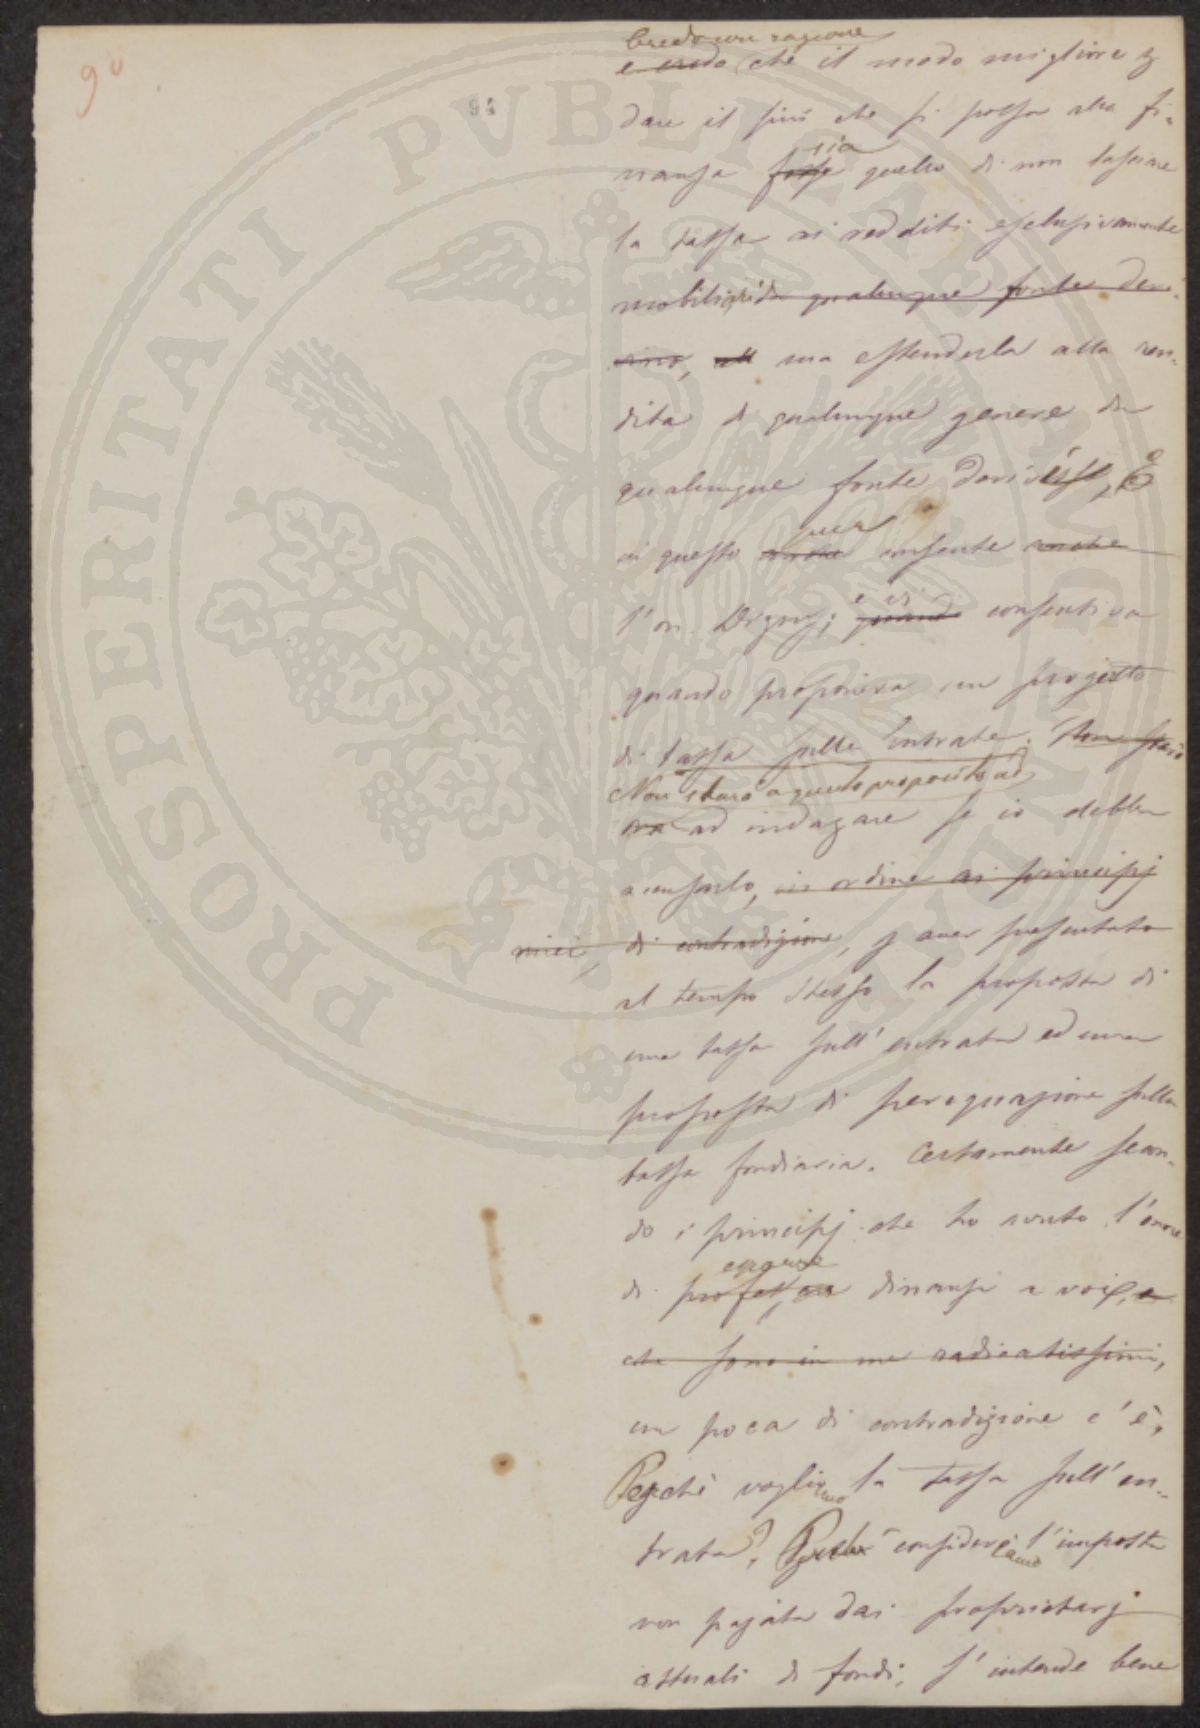 9º
94
Credo con ragione
e credo che il modo migliore p
dare il più che si possa alla fi-
nanza fosse sia quello di non lasciare
la tassa ai redditi esclusivamente
mobiliari da qualunque fonte deri-
vino, ma estenderla alla ren-
dita di qualunque genere da
qualunque fonte derivasse, E
a questo pur consente anche
l'on. Digny; quando e vi consentiva
quando proponeva un progetto
di tassa sulle Entrate. Non starò
Non starò a questo proposito ad
ora ad indagare se io debba
accusarlo, in ordine ai principj
miei, di contradizione, p aver presentato
al tempo stesso la proposta di
una tassa sull'entrata ed una
proposta di perequazione sulla
tassa fondiaria. Certamente secon-
do i principj che ho avuto l'onore
esporre
di dinanzi a voi, e
che sono in me radicatissimi,
un poca di contradizione c'è,
Perchè vogliamo la tassa sull'en-
trata? Perchè consideriamo l'imposta
non pagata dai proprietarj
attuali di fondi, s'intende bene
PROSPERITATI PVBLICAE